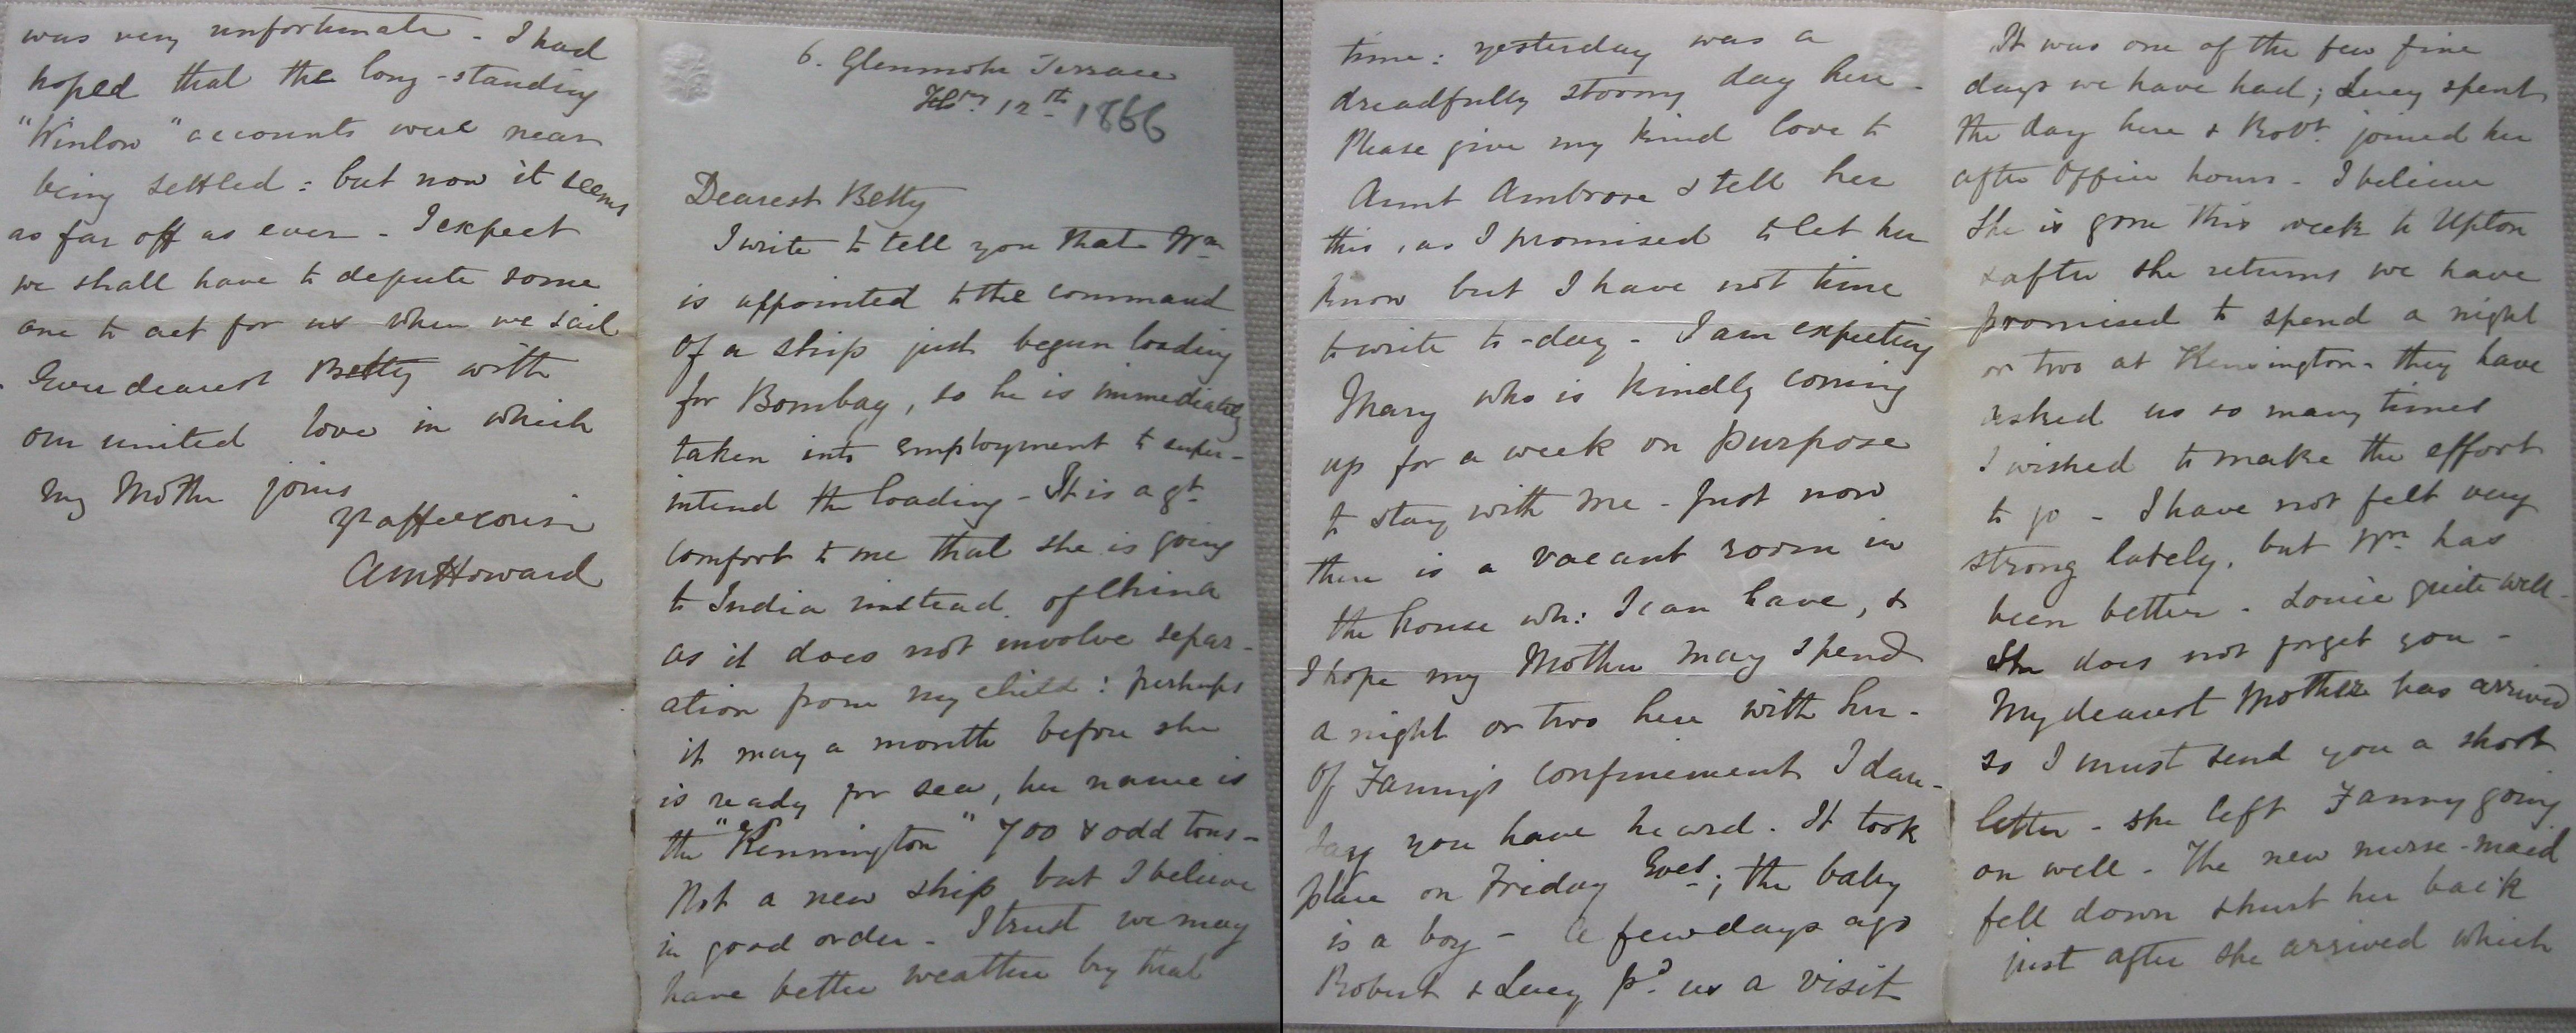 6. Glenmohr Terrace
Feb.ry 12th 1866
Dearest Betty
I write to tell you that Wm
is appointed to the command
of a ship just begun loading
for Bombay, so he is immediately
taken into employment to super-
intend the loading - It is a gt
comfort to me that she is going
to India instead of China
as it does not involve separ-
ation from my child: perhaps
it may a month before she
is ready for sea, her name is
the "Kennington" 700 & odd tons -
Not a new ship but I believe
in good order - I trust we may
have better weather by that
time: yesterday was a
dreadfully stormy day here -
Please give my kind love to
Aunt Ambrose & tell her
this, as I promised to let her
know but I have not time
to write to-day - I am expecting
Mary who is kindly coming
up for a week on purpose
to stay with me - Just now
there is a vacant room in
the house wh: I can have, &
I hope my Mother may spend
a night or two here with her -
Of Fanny's confinement I dare-
say you have heard. It took
place on Friday Eveg; the baby
is a boy - A few days ago
Robert & Lucy pd. us a visit
It was one of the few fine
days we have had; Lucy spent
the day here & Robt. joined her
after Office hours - I believe
She is gone this week to Upton
& after she returns we have
promised to spend a night
or two at Kensington - they have
asked us so many times
I wished to make the effort
to go - I have not felt very
strong lately, but Wm has
been better - Louie quite well -
She does not forget you -
My dearest Mother has arrived
so I must send you a short
letter - she left Fanny going
on well - The new nurse-maid
fell down & hurt her back
just after she arrived which
was very unfortunate - I had
hoped that the long-standing
"Winlow" accounts were near
being settled: but now it seems
as far off as ever - I expect
we shall have to depute some
one to act for us when we sail
Ever dearest Betty with
our united love in which
my Mother joins
Yr affec cousin
AM Howard